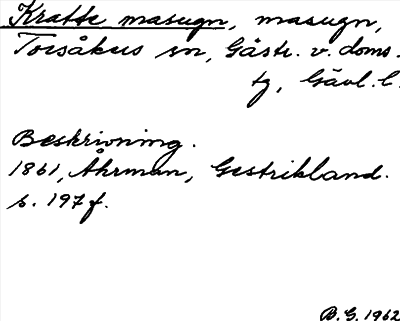 Kratte masugn, masugn,
Torsåkers sn, Gästr. v. doms.
tg, Gävl. l.
Beskrivning.
1861, Åhrman, Gestrikland.
s. 197 f.
B. G. 1962